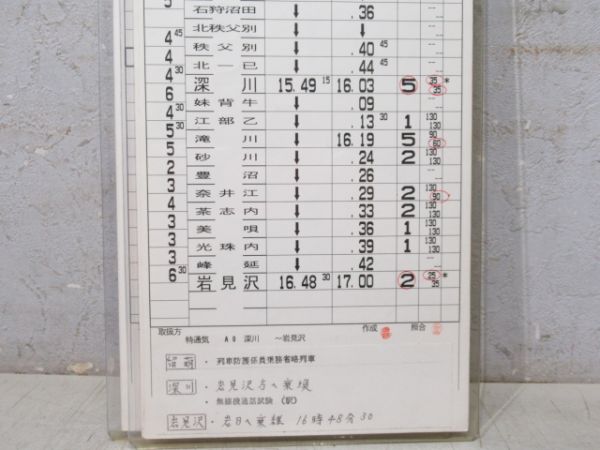 5 石狩沼田 ↓ . 36
北秩父別 ↓ ↓
4 45 秩父別 ↓ . 40 45
4 北一已 ↓ . 44 45
4 30 深川 15.49 15 16.03 5 35 35 *
6 妹背牛 ↓ . 09
4 30 江部乙 ↓ . 13 30 1 130 130
5 30 滝川 ↓ 16.19 5 90 60
5 砂川 ↓ . 24 2 130 130
2 豊沼 ↓ . 26
3 奈井江 ↓ . 29 2 130 90
4 茶志内 ↓ . 33 2 130 130
3 美唄 ↓ . 36 1 130 130
3 光珠内 ↓ . 39 1 130 130
3 峰延 ↓ . 42
6 30 岩見沢 16.48 30 17.00 2 25 35 *
取扱方 作成 照合
特通気 A0 深川 ～岩見沢
・列車防護係員乗務省略列車
深川 ・岩見沢
・無線機通話試験 (駅)
岩見沢 ・ 16時48分30